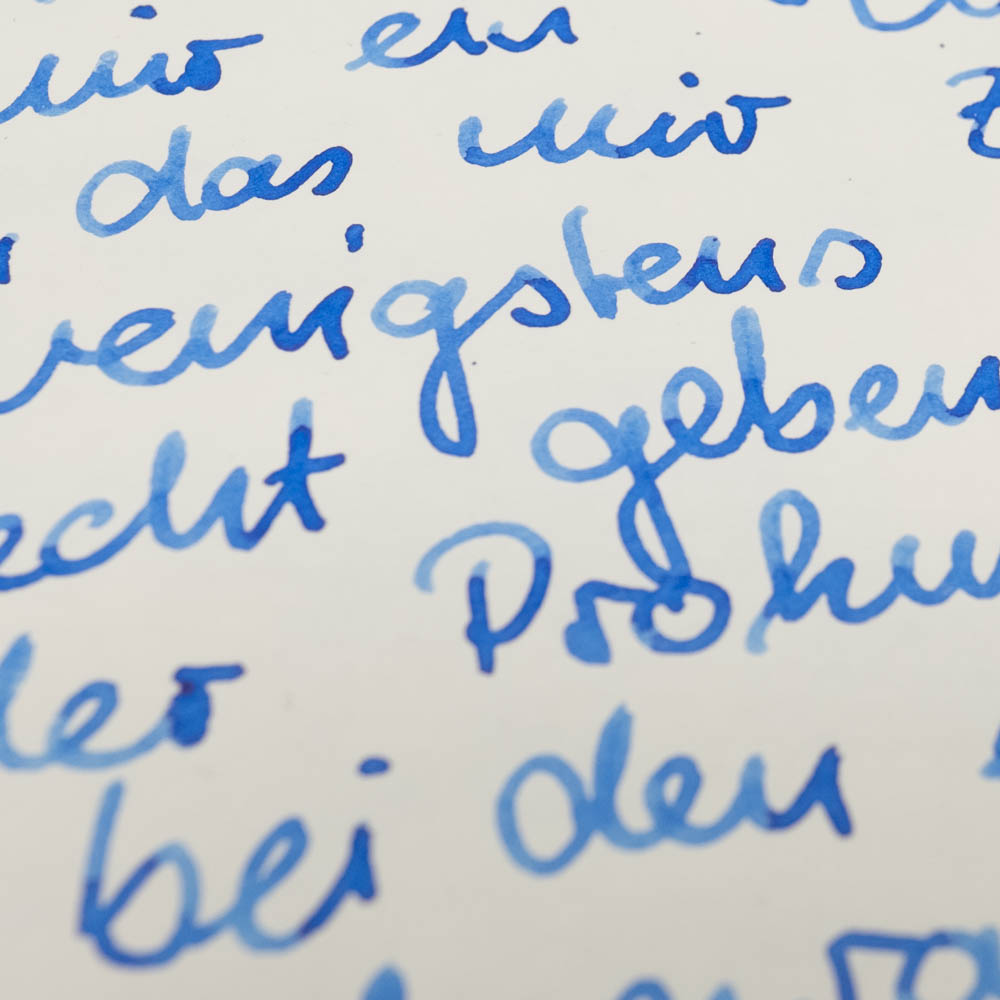 mir ein
das mir
wenigstens
echt geben
der Prokur
bei den